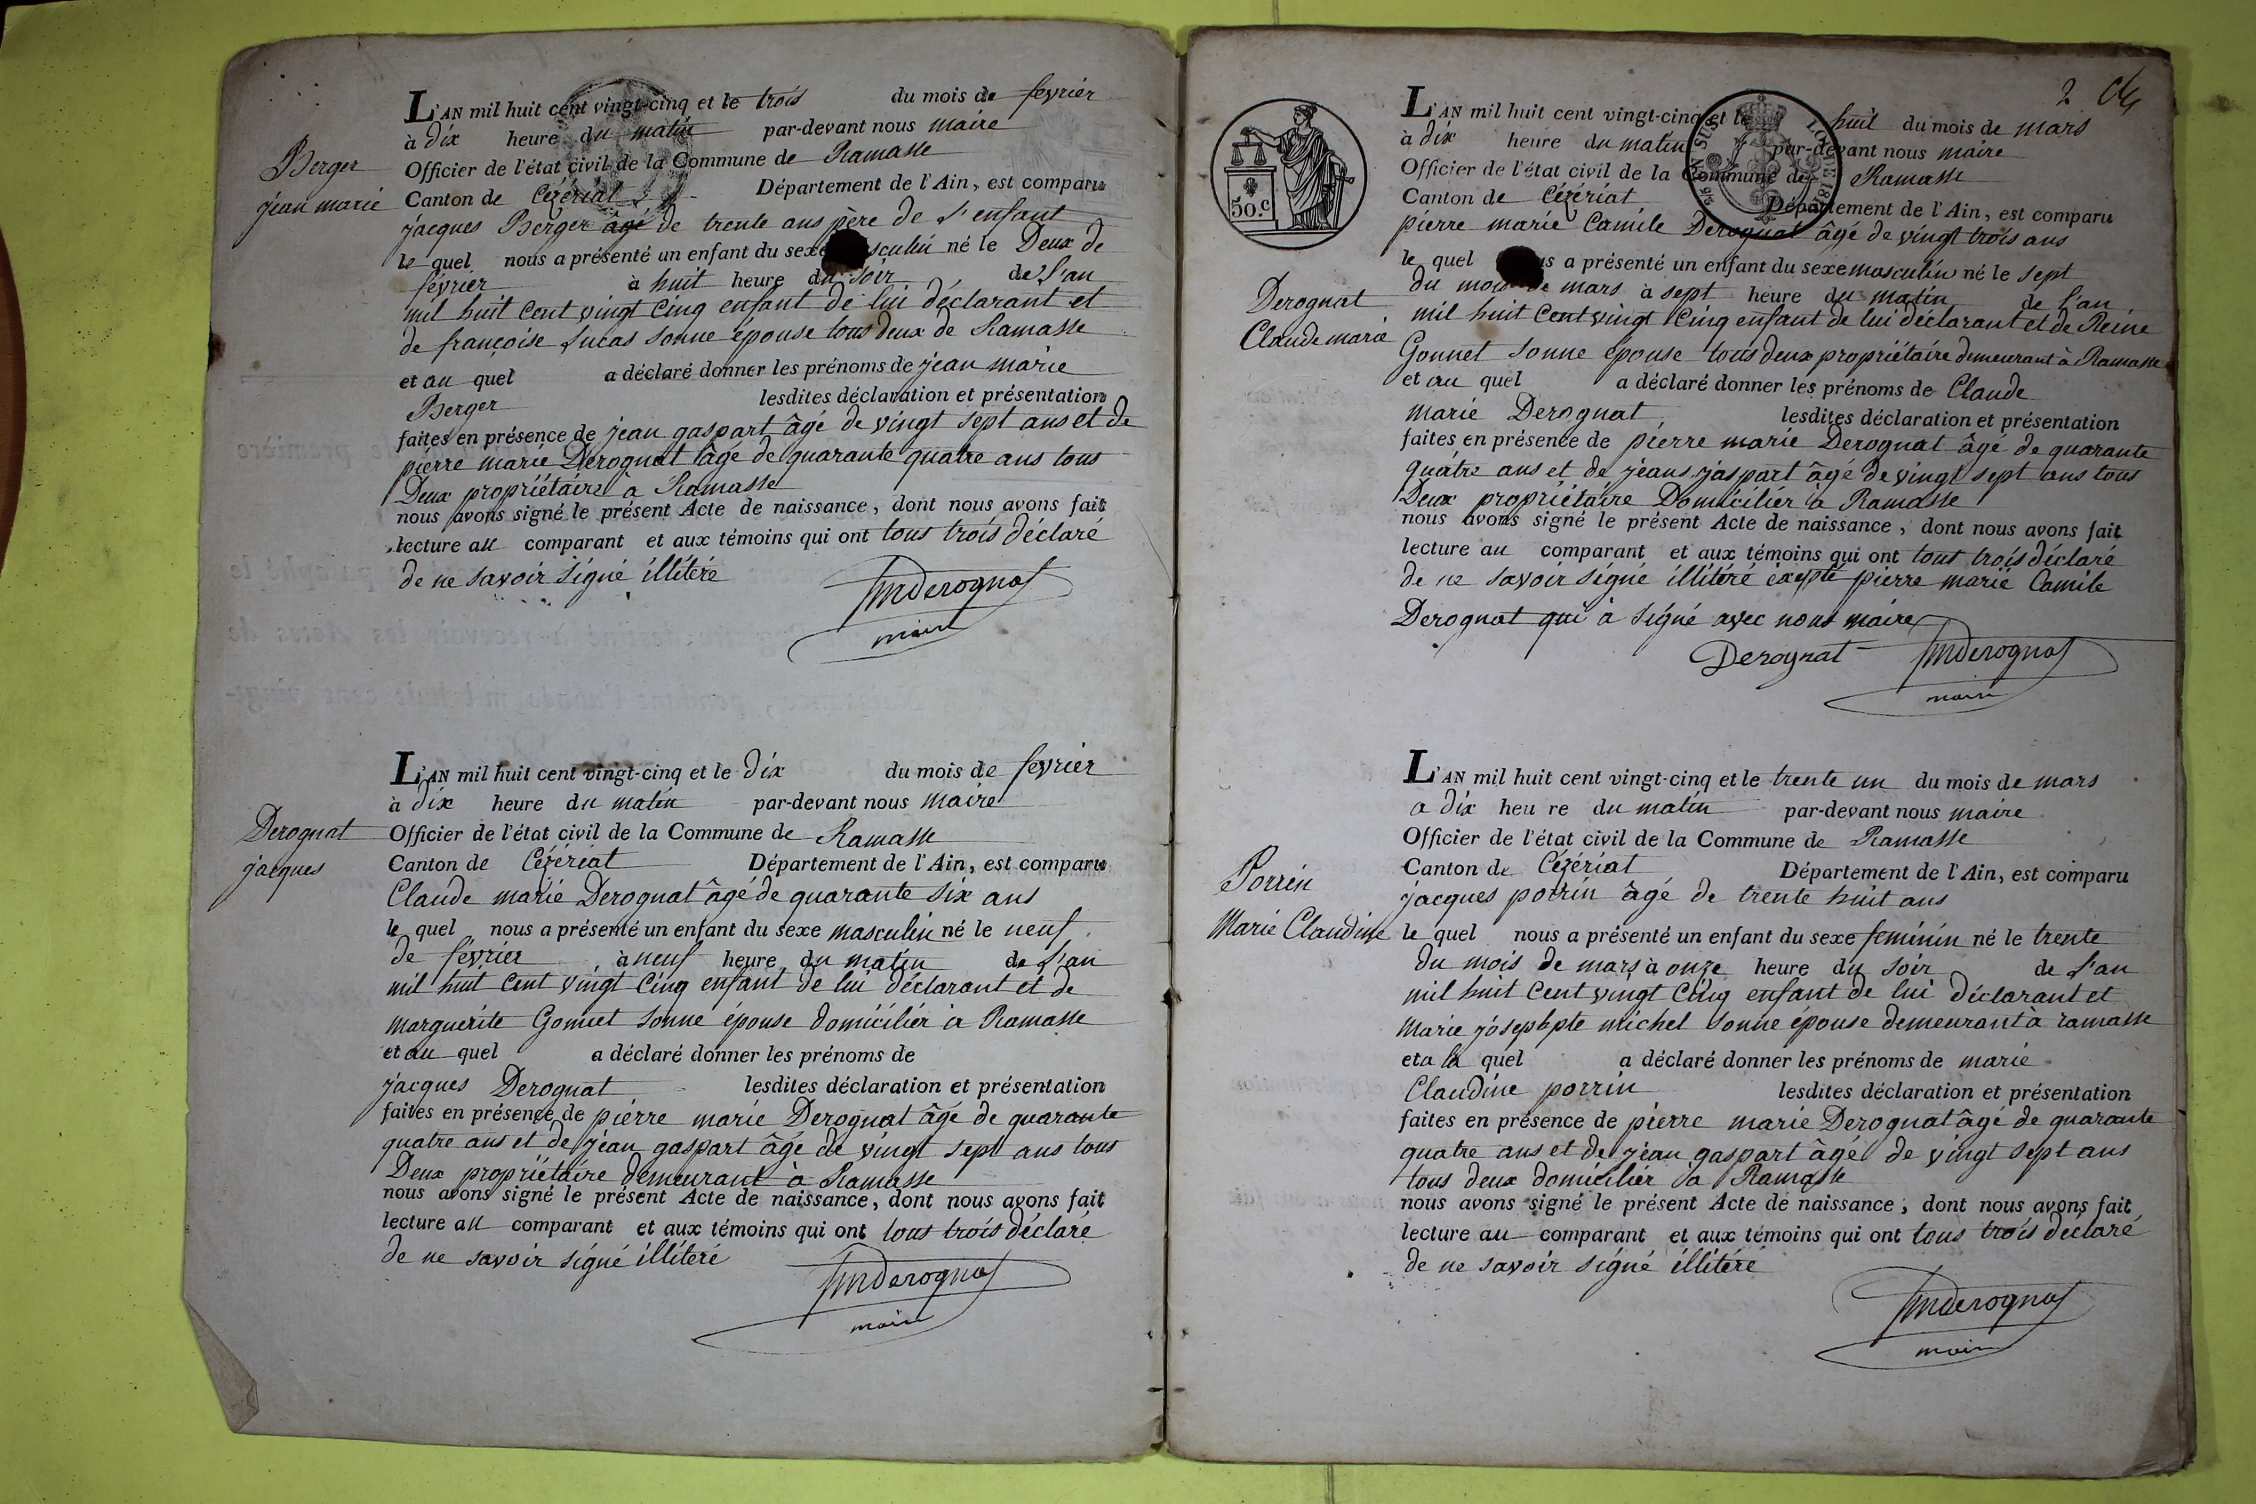 Berger
jean marie
L'AN mil huit cent vingt-cinq et le trois du mois de fevrier
à dix heure du matin par-devant nous maire
Officier de l'état civil de la Commune de Ramasse
Canton de Cézériat Département de l'Ain, est comparu
jacques Berger âgé de trente ans père de l'enfant
le quel nous a présenté un enfant du sexe né le Deux de
février à huit heure du soir de l'an
mil huit cent vingt cinq enfant de lui déclarant et
de françoise Lucas sonne épouse tous deux de Ramasse
et au quel a déclaré donner les prénoms de jean marie
Berger lesdites déclaration et présentation
faites en présence de jean gaspart âgé de vingt sept ans et de
pierre marie Derognat âgé de quarante quatre ans tous
Deux propriétaire à Ramasse
nous avons signé le présent Acte de naissance, dont nous avons fait
lecture au comparant et aux témoins qui ont tous trois déclaré
de ne savoir signé illiteré
maire
Derognat
jacques
L'AN mil huit cent vingt-cinq et le dix du mois de fevrier
à dix heure du matin par-devant nous maire
Officier de l'état civil de la Commune de Ramasse
Canton de Cézériat Département de l'Ain, est comparu
Claude marie Derognat âgé de quarante six ans
le quel nous a présenté un enfant du sexe masculin né le neuf
de février à neuf heure du matin de l'an
mil huit cent vingt cinq enfant de lui déclarant et de
marguerite Gonnet sonne épouse domicilier à Ramasse
et au quel a déclaré donner les prénoms de
jacques Derognat lesdites déclaration et présentation
faites en présence de pierre marie Derognat âgé de quarante
quatre ans et de jean gaspart âgé de vingt sept ans tous
Deux propriétaire demeurant à Ramasse
nous avons signé le présent Acte de naissance, dont nous avons fait
lecture au comparant et aux témoins qui ont tous trois déclaré
de ne savoir signé illiteré
maire
2
50.c
Derognat
Claude marie
L'AN mil huit cent vingt-cinq et le huit du mois de mars
à dix heure du matin par-devant nous maire
Officier de l'état civil de la Commune de Ramasse
Canton de Cézériat Département de l'Ain, est comparu
pierre marie Camile Derognat âgé de vingt trois ans
le quel a présenté un enfant du sexe masculin né le sept
du mois de mars à sept heure du matin de l'an
mil huit cent vingt cinq enfant de lui déclarant et de Reine
Gonnet sonne épouse tous deux propriétaire demeurant à Ramasse
et au quel a déclaré donner les prénoms de Claude
marie Derognat lesdites déclaration et présentation
faites en présence de pierre marie Derognat âgé de quarante
quatre ans et de jeans gaspart âgé de vingt sept ans tous
Deux propriétaire Domicilier à Ramasse
nous avons signé le présent Acte de naissance, dont nous avons fait
lecture au comparant et aux témoins qui ont tous trois déclaré
de ne savoir signé illitéré éxepté pierre marie Camile
Derognat qui à signé avec nous maire
Derognat
maire
Porrin
Marie Claudine
L'AN mil huit cent vingt-cinq et le trente un du mois de mars
a dix heu re du matin par-devant nous maire
Officier de l'état civil de la Commune de Ramasse
Canton de Cézériat Département de l'Ain, est comparu
jacques porrin âgé de trente huit ans
le quel nous a présenté un enfant du sexe feminin né le trente
du mois de mars à onze heure du soir de l'an
mil huit cent vingt cinq enfant de lui déclarant et
marie michel sonne épouse demeurant à ramasse
et a la quel a déclaré donner les prénoms de marie
Claudine porrin lesdites déclaration et présentation
faites en présence de pierre marie Derognat âgé de quarante
quatre ans et de jean gaspart âgé de vingt sept ans
tous deux domicilier à Ramasse
nous avons signé le présent Acte de naissance, dont nous avons fait
lecture au comparant et aux témoins qui ont tous trois déclaré
de ne savoir signé illitéré
maire